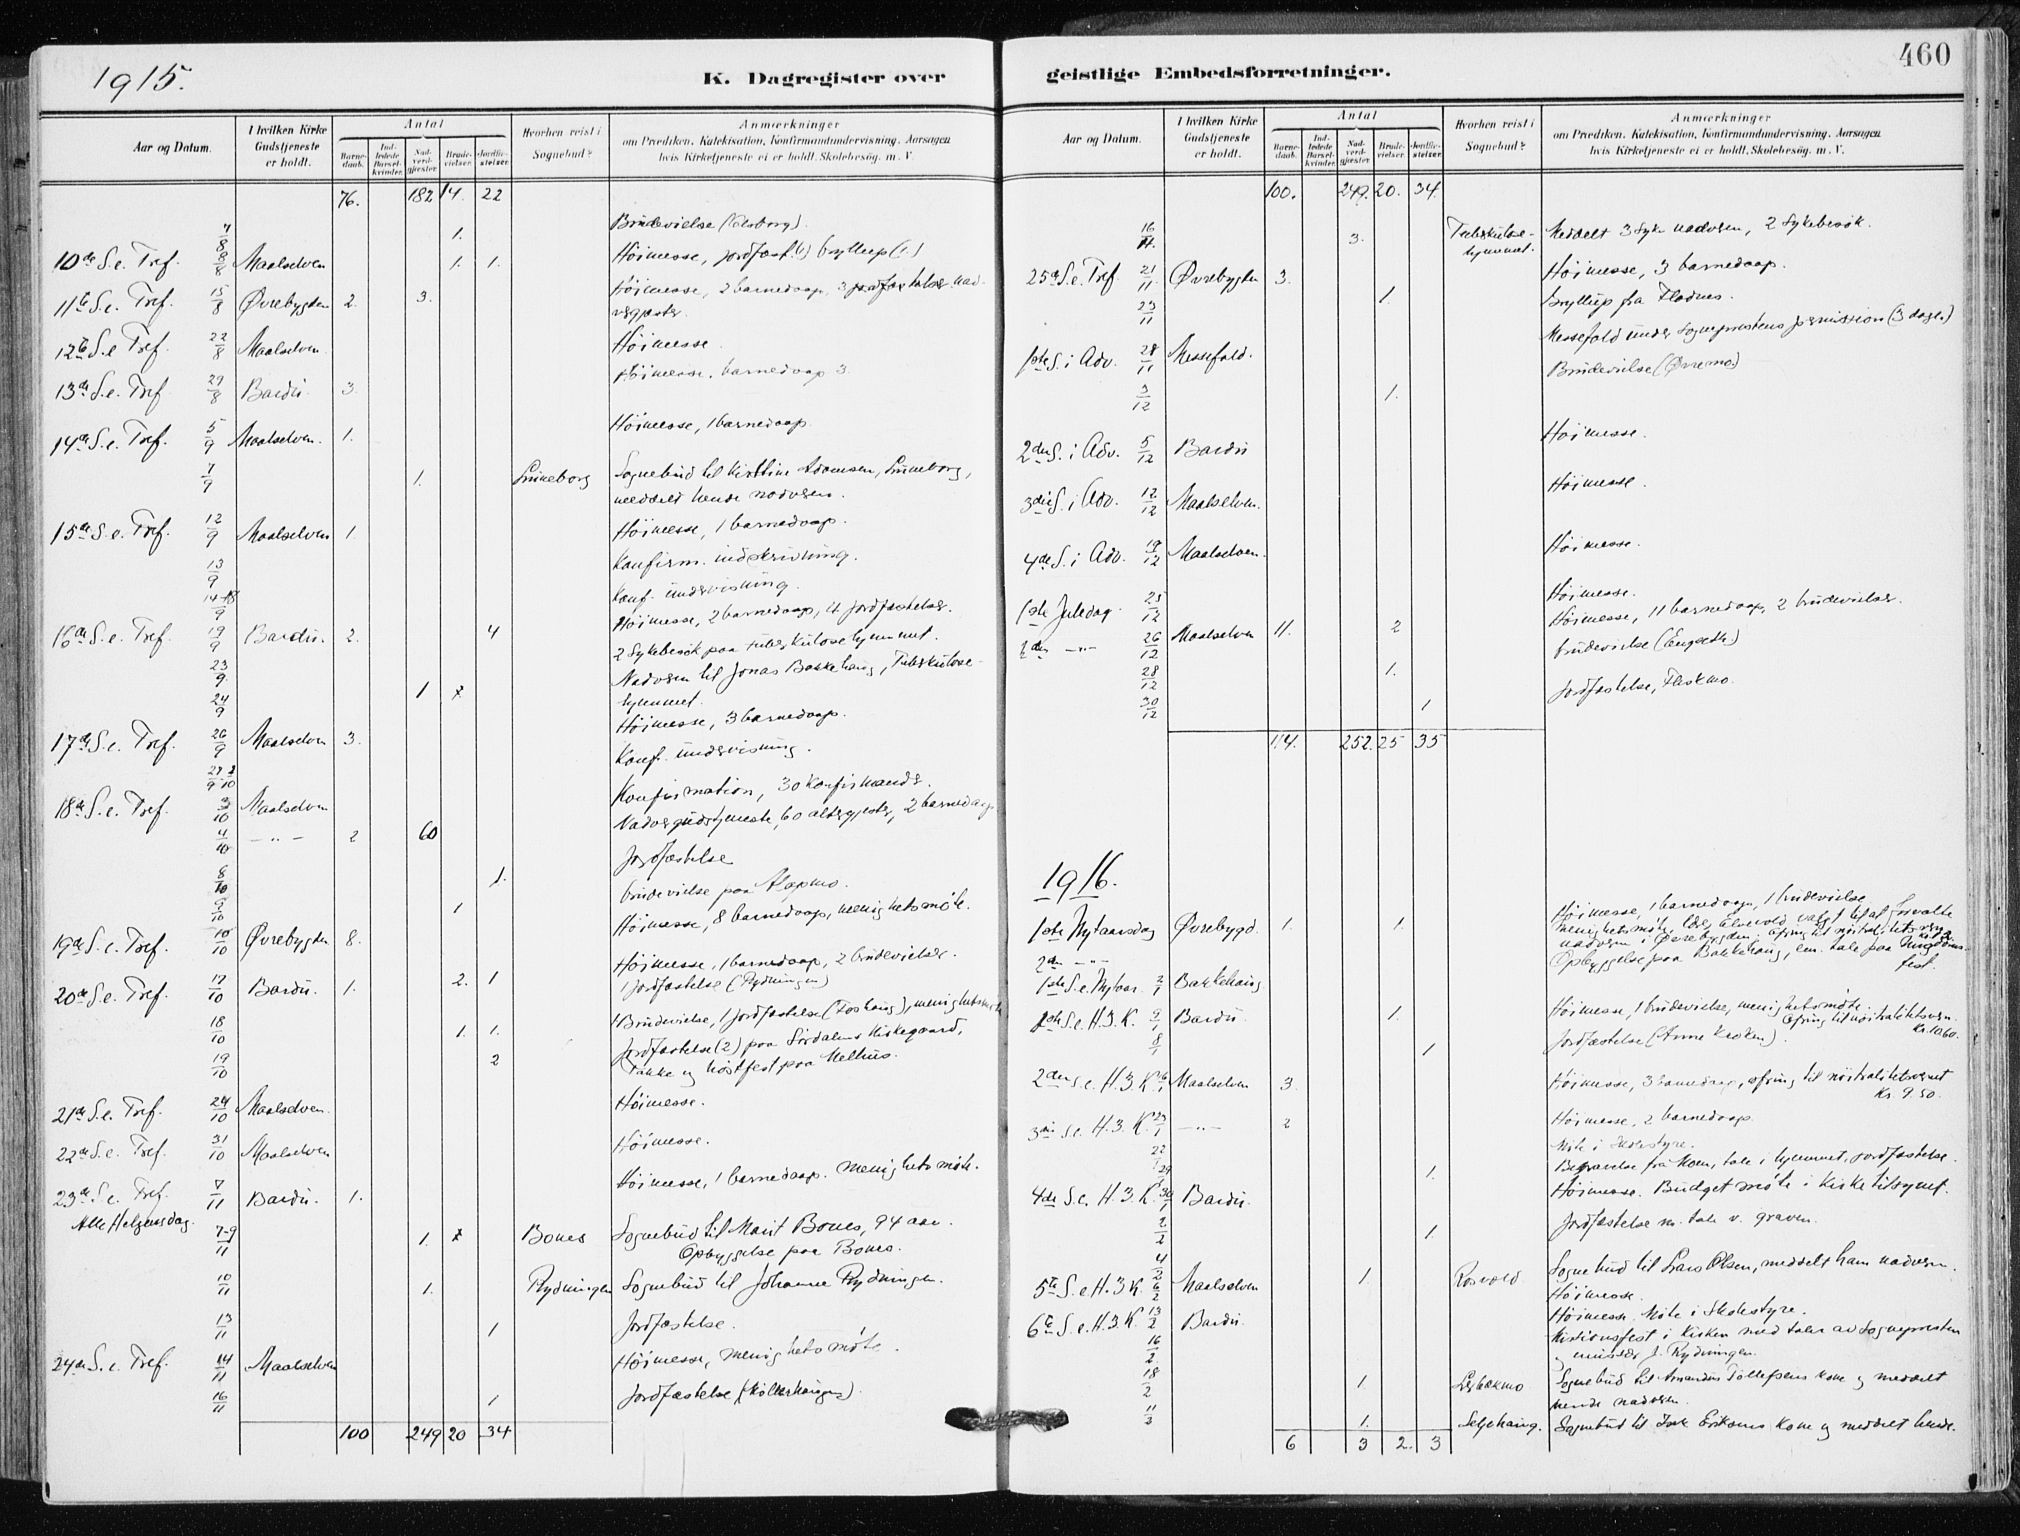 1915.
K. Dagregister over
Aar og Datum.
I hvilken Kirke Gudstjeneste er holdt.
Antal
Barnedaab.
Indledede Barselkvinder.
Nadverdgjæster.
Brudevielser.
Jordfæstelser.
Hvorhen reist i Sognebud?
Anmærkninger
om Prædiken. Katekisation, Konfirmandundervisning. Aarsagen
hvis Kirketjeneste ei er holdt. Skolebesøg. m. V.
76. 182 14. 22
7/8 1. Brudevielse
10de S. e. Tref. 8/8 Maalselven 1. 1. Höimesse, jordfæst. (1) bryllup (1)
11te S. e. Tref. 15/8 Øvrebygden 2. 3. Höimesse, 2 barnedaap, 3 nad-
vergjester.
12te S. e. Tref. 22/8 Maalselven Höimesse.
13de S. e. Tref. 29/8 Bardu. 3. Höimesse. barnedaap 3.
14de S. e. Tref. 5/9 Maalselven. 1. Höimesse, 1 barnedaap.
7/9 1. Luneborg Sognebud til Kirstine Adamsen, Luneborg,
meddelt hende nadveren.
15de S. e. Tref. 12/9 Maalselven 1. Höimesse, 1 barnedaap.
13/9 Konfirm. indskrivning.
14-18/9 Konf. undervisning.
16de S. e. Tref. 19/9 Bardu. 2. 4 Höimesse, 2 barnedaap, 4 jordfæstelser.
23/9. 2 Sykebesök paa tuberkulosehjemmet.
24/9 1 Nadveren til Jonas Bakkehaug, Tuberkulose-
hjemmet.
17de S. e. Tref. 26/9 Maalselven 3. Höimesse, 3 barnedaap.
27/9-2/10 Konf. undervisning.
18de S. e. Tref. 3/10 Maalselven Konfirmation, 30 konfirmander.
4/10 — " — 2 60 Nadvergudstjeneste, 60 altergjester, 2 barnedaap
8/10 1. Jordfæstelse
9/10 1 brudevielse paa Alapmo.
19de S. e. Tref. 10/10 Øvrebygden 8. Höimesse, 8 barnedaap, menighetsmöte.
20de S. e. Tref. 17/10 Bardu. 1. 2. 1 Höimesse, 1 barnedaap, 2 brudevielser.
1 Jordfæstelse (Rydningen)
18/10 1. 1. 1 Brudevielse, 1 jordfæstelse (Foshaug), menighetsmöte
19/10 2 Jordfæstelse (2) paa Sördalens Kirkegaard,
Takke og höstfest paa Melhus.
21de S. e. Tref. 24/10 Maalselven. Höimesse.
22de S. e. Tref. 31/10 Maalselven Höimesse.
23de S. e. Tref. 7/11 Bardu. 1. Höimesse, 1 barnedaap. Menighetsmöte.
Alle Helgensdag.
7-9/11 1. Bones Sognebud til Marit Bones, 94 aar.
Opbyggelse paa Bones.
10/11 1. Rydningen Sognebud til Johanne Rydningen.
13/11 1 Jordfæstelse.
24de S. e. Tref. 14/11 Maalselven Höimesse, menighetsmöte.
16/11 1 Jordfæstelse
100 249 20 34
460
geistlige Embedsforretninger.
Aar og Datum.
I hvilken Kirke Gudstjeneste er holdt.
Antal
Barnedaab.
Indledede Barselkvinder.
Nadverdgjæster.
Brudevielser.
Jordfæstelser.
Hvorhen reist i Sognebud?
Anmærkninger
om Prædiken. Katekisation, Konfirmandundervisning. Aarsagen
hvis Kirketjeneste ei er holdt. Skolebesøg. m. V.
100. 249. 20. 34.
16/11. 3. Tuberkulose-
hjemmet. Meddelt 3 syke nadveren, 2 sykebesök.
25de S. e. Tref 21/11. Øvrebygden 3. Höimesse, 3 barnedaap.
23/11 1. Bryllup fra Flodnes.
1ste S. i Adv. 28/11 Messefald. Messefald under Sogneprestens permission (3 dage)
3/12 1. Brudevielse (Øvremo)
2den S. i Adv. 5/12 Bardu Höimesse.
3die S. i Adv. 12/12 Maalselven. Höimesse.
4de S. i Adv. 19/12 Maalselven. Höimesse.
1ste Juledag. 25/12 Höimesse.
2den — " — 26/12 Maalselven 11. 2 Höimesse, 11 barnedaap, 2 brudevielser.
28/12 1. brudevielse (Engseth)
30/12 1 Jordfæstelse, Fleskmo.
114. 252. 25 35
1916.
1ste Nytaarsdag Øvrebygd. 1. 1. Höimesse, 1 barnedaap, 1 brudevielse
2den — " —
1ste S. e. Nytaar. 2/1 Bakkehaug Opbyggelse paa Bakkehaug, em. tale paa Ungdoms-
fest.
1ste S. e. H. 3. K. 9/1 Bardu. 1. Höimesse, 1 brudevielse, menighetsmöte.
Ofring til nöitralitetsvern.
Kr. 10.60.
8/1 1 Jordfæstelse (Anne Kroken).
2den S. e. H. 3 K 16/1 Maalselven 3. Höimesse, 3 barnedaap, ofring til nöitralitetsvernet
Kr. 9.50.
3die S. e. H. 3. K. 23/1 — " — 2 Höimesse, 2 barnedaap.
22/1 Möte i Skolestyre.
29/1 1. Begravelse fra Moen, tale i hjemmet, jordfæstelse.
4de S. e. H. 3. K. 30/1 Bardu. Höimesse. Budgetmöte i kirketilsynet.
2/2 1. Jordfæstelse m. tale v. graven.
4/2 1. Rosvold Sognebud til Lars Olsen, meddelt ham nadveren.
5te S. e H. 3 K. 6/2 Maalselven Höimesse.
6te S. e. H. 3. K. 13/2 Bardu. Höimesse. Möte i Skolestyre.
16/2. Missionsfest i Kirken med taler av Sognepresten
og J. Rydningen.
18/2 1. Sognebud til Amandus Tollefsens kone og meddelt
hende nadveren.
11/3 1. Seljehaug. Sognebud til Eriksens kone og meddelt hende.
6 3 2. 3